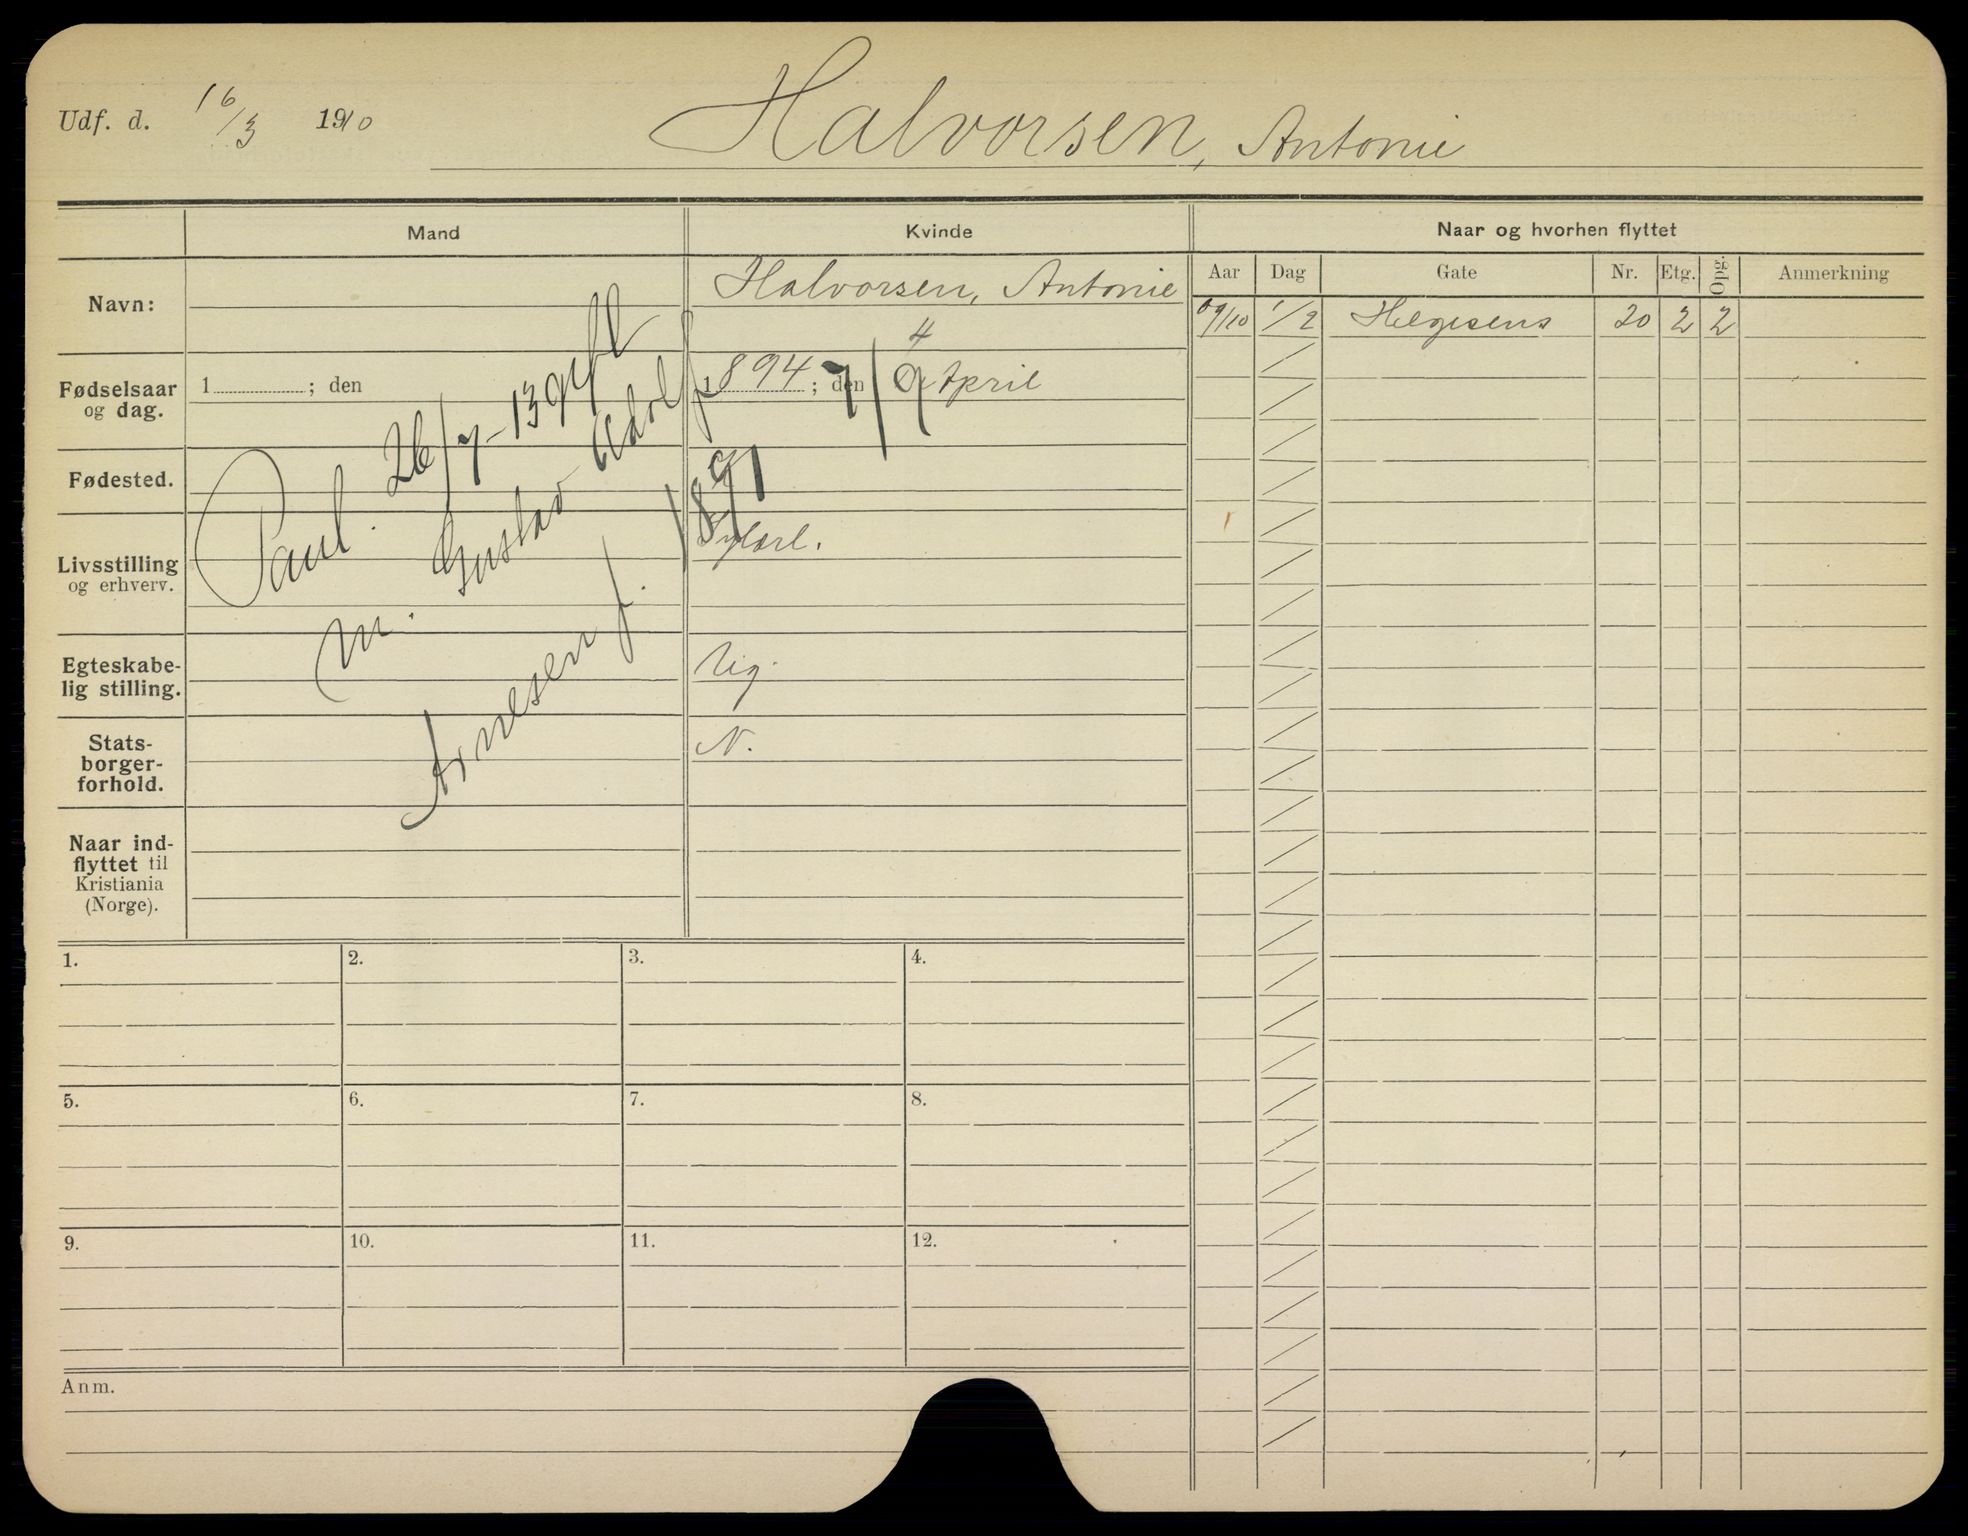 Udf. d. 16/3 1910 Halvorsen, Antonie
Mand Kvinde Naar og hvorhen flyttet
Aar Dag Gate Nr. Etg. Opg. Anmerkning
Navn: Halvorsen, Antonie
09/10 1/2 Helgesens 20 2 2
4
Fødselsaar og dag. 1 ; den 1894 ; den 9 April
7/9
1891
Fødested.
Livsstilling og erhverv. Sylærl.
Egteskabelig stilling. Ug.
Statsborgerforhold. N.
Naar indflyttet til Kristiania (Norge).
Paul. 26/7-13 gift
m. Gustav Adolf
Arnesen f.
1. 2. 3. 4.
5. 6. 7. 8.
9. 10. 11. 12.
Anm.